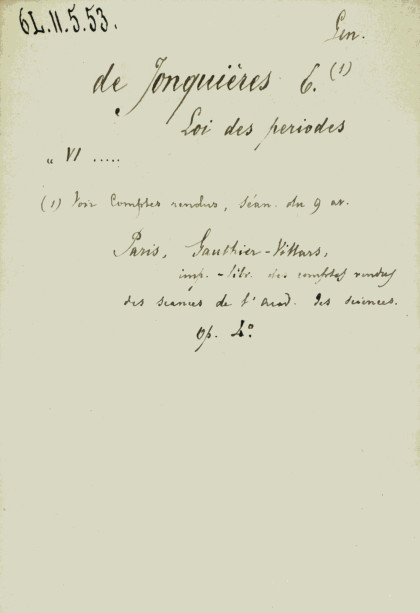 6L.11.5.53.
Gen.
de Jonquières E. (1)
Loi des periodes
" VI .....
(1) Voir Comptes rendus, séan. du 9 av.
Paris, Gauthier-Villars,
imp. - libr. des comptes rendus
des seances de l'Acad. des sciences.
Op. 4°